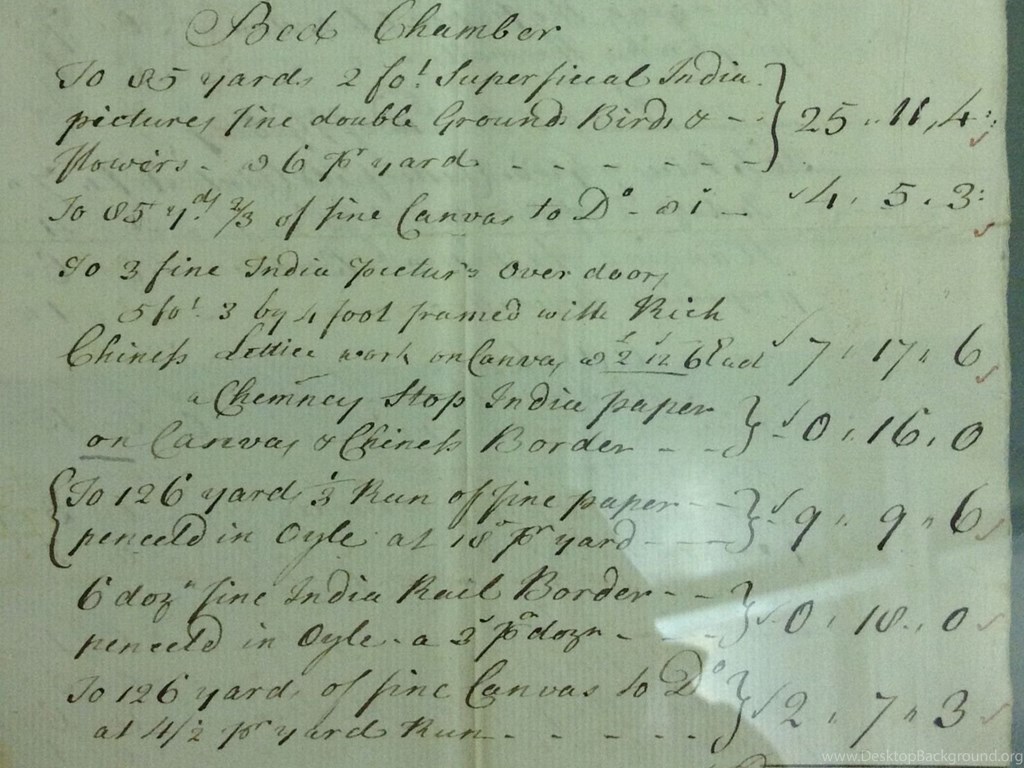 Bed Chamber
To 85 yards 2 fot Superficial India
pictures fine double Ground Birds &
flowers - a 6 pr yard - - - - - - - 25 , 11 , 4
To 85 yds 2/3 of fine Canvas to Do - a 1 - 4 , 5 , 3
To 3 fine India Pictur's Over doors
5 fot 3 by 4 foot framed with Rich
Chiness Lettice work on Canvas a 2 12 6 Each 7 , 17 , 6
a Chemney Stop India paper
on Canvas & Chiness Border - - - 0 , 16 , 0
To 126 yards 1/3 Run of fine paper - -
penceld in Oyle at 18 pr yard - - - 9 , 9 , 6
6 dozn fine India Rail Border - -
penceld in Oyle - a 3 pr dozn - - - 0 , 18 , 0
To 126 yards of fine Canvas to Do
at 4 1/2 pr yard Run - - - - - 2 , 7 , 3
www.DesktopBackground.org